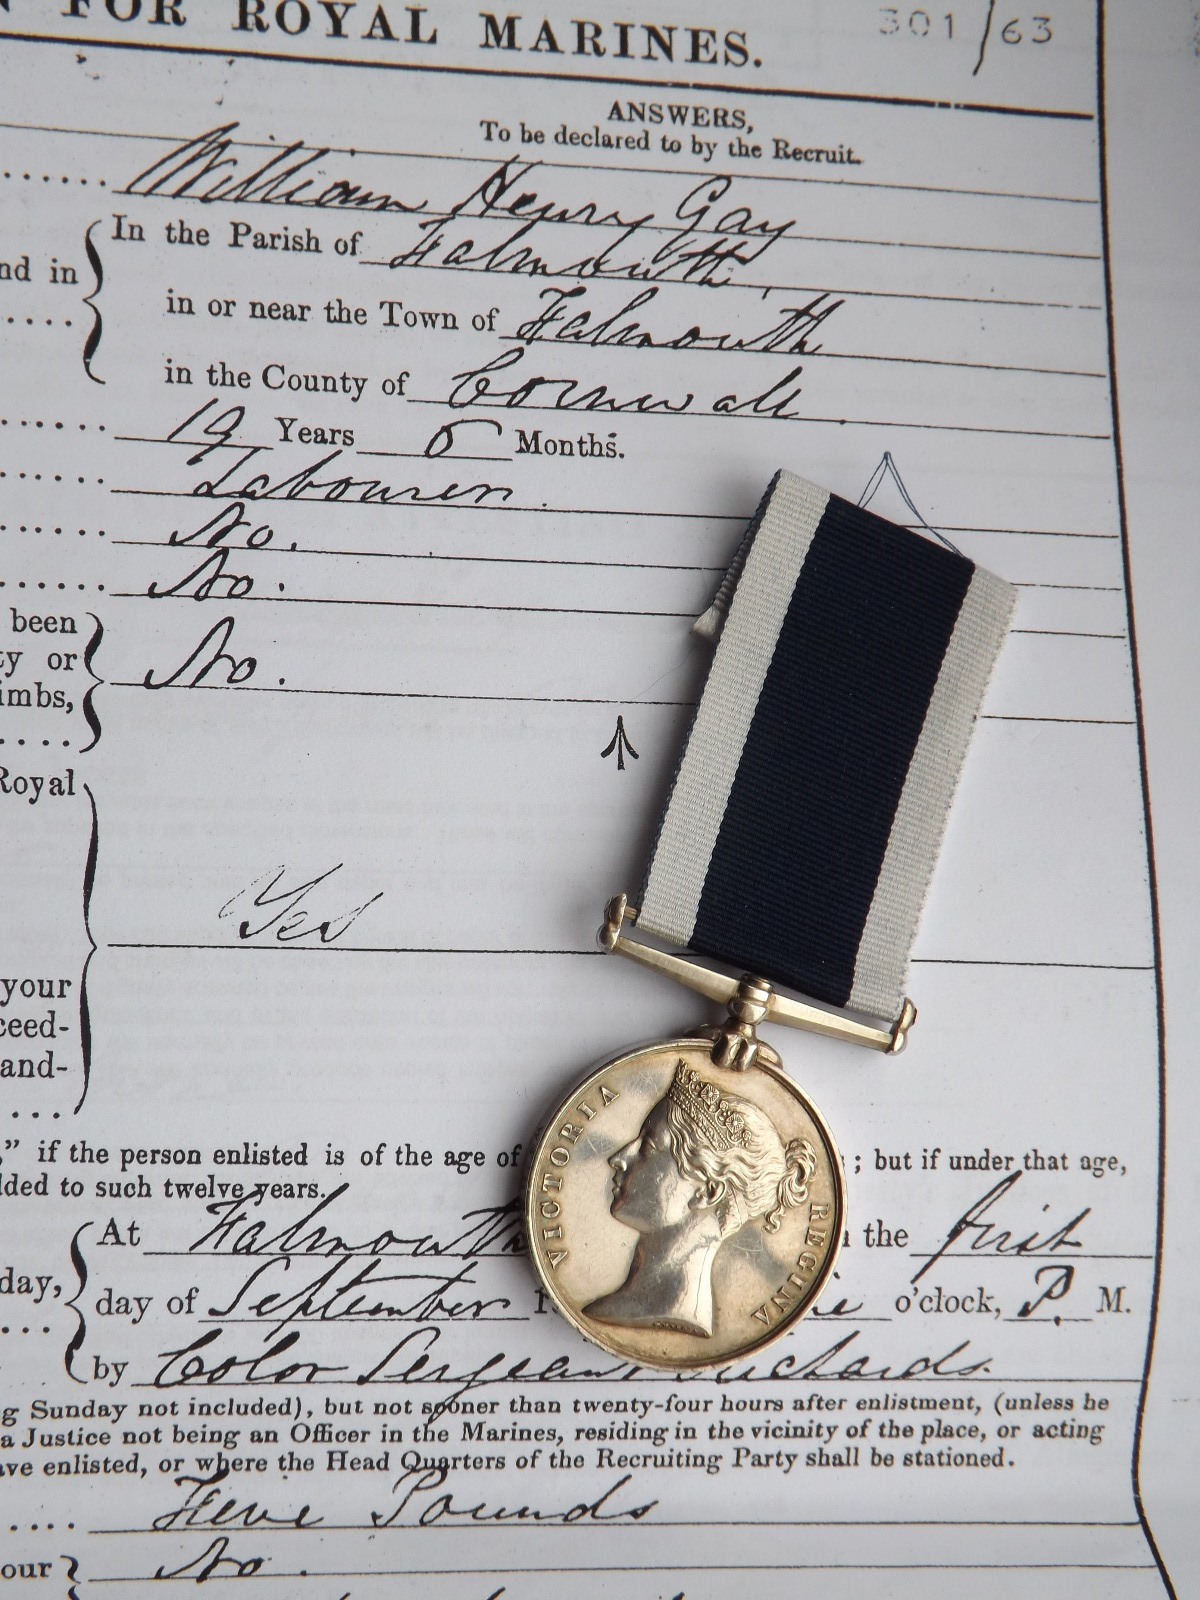 N FOR ROYAL MARINES.
301/63
ANSWERS,
To be declared to by the Recruit.
...... William Henry Gay
In the Parish of Falmouth,
nd in
in or near the Town of Falmouth
in the County of Cornwall.
...... 19 Years 6 Months.
...... Labourer.
...... No.
...... No.
been
ty or No.
imbs,
Royal
Yes
your
ceed-
and-
VICTORIA REGINA
," if the person enlisted is of the age of ; but if under that age,
dded to such twelve years.
At Falmouth the first
day, day of September 1 o'clock, P. M.
by Color Sergeant Richards.
g Sunday not included), but not sooner than twenty-four hours after enlistment, (unless he
a Justice not being an Officer in the Marines, residing in the vicinity of the place, or acting
ave enlisted, or where the Head Quarters of the Recruiting Party shall be stationed.
.... Five Pounds
our No.